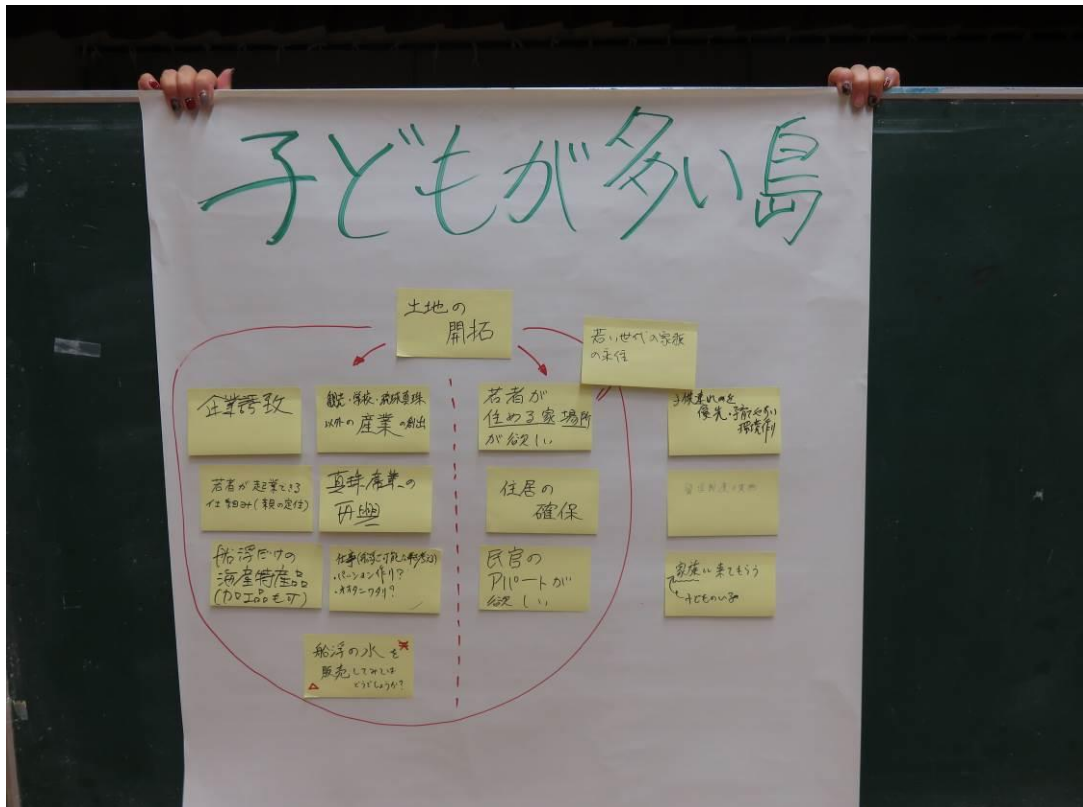 子どもが多い島
土地の
開拓
若い世代の家族
の永住
企業誘致
観光・学校・琉球真珠
以外の産業の創出
若者が
住める家場所
が欲しい
子供連れを
優先・子育てしやすい
環境作り
若者が起業できる
仕組み(親の定住)
真珠産業の
再興
住居の
確保
船浮だけの
海産特産品
(加工品も可)
パーション作り?
民官の
アパートが
欲しい
家族に来てもらう
子どものいる
船浮の水を
販売してみては
どうでしょうか?